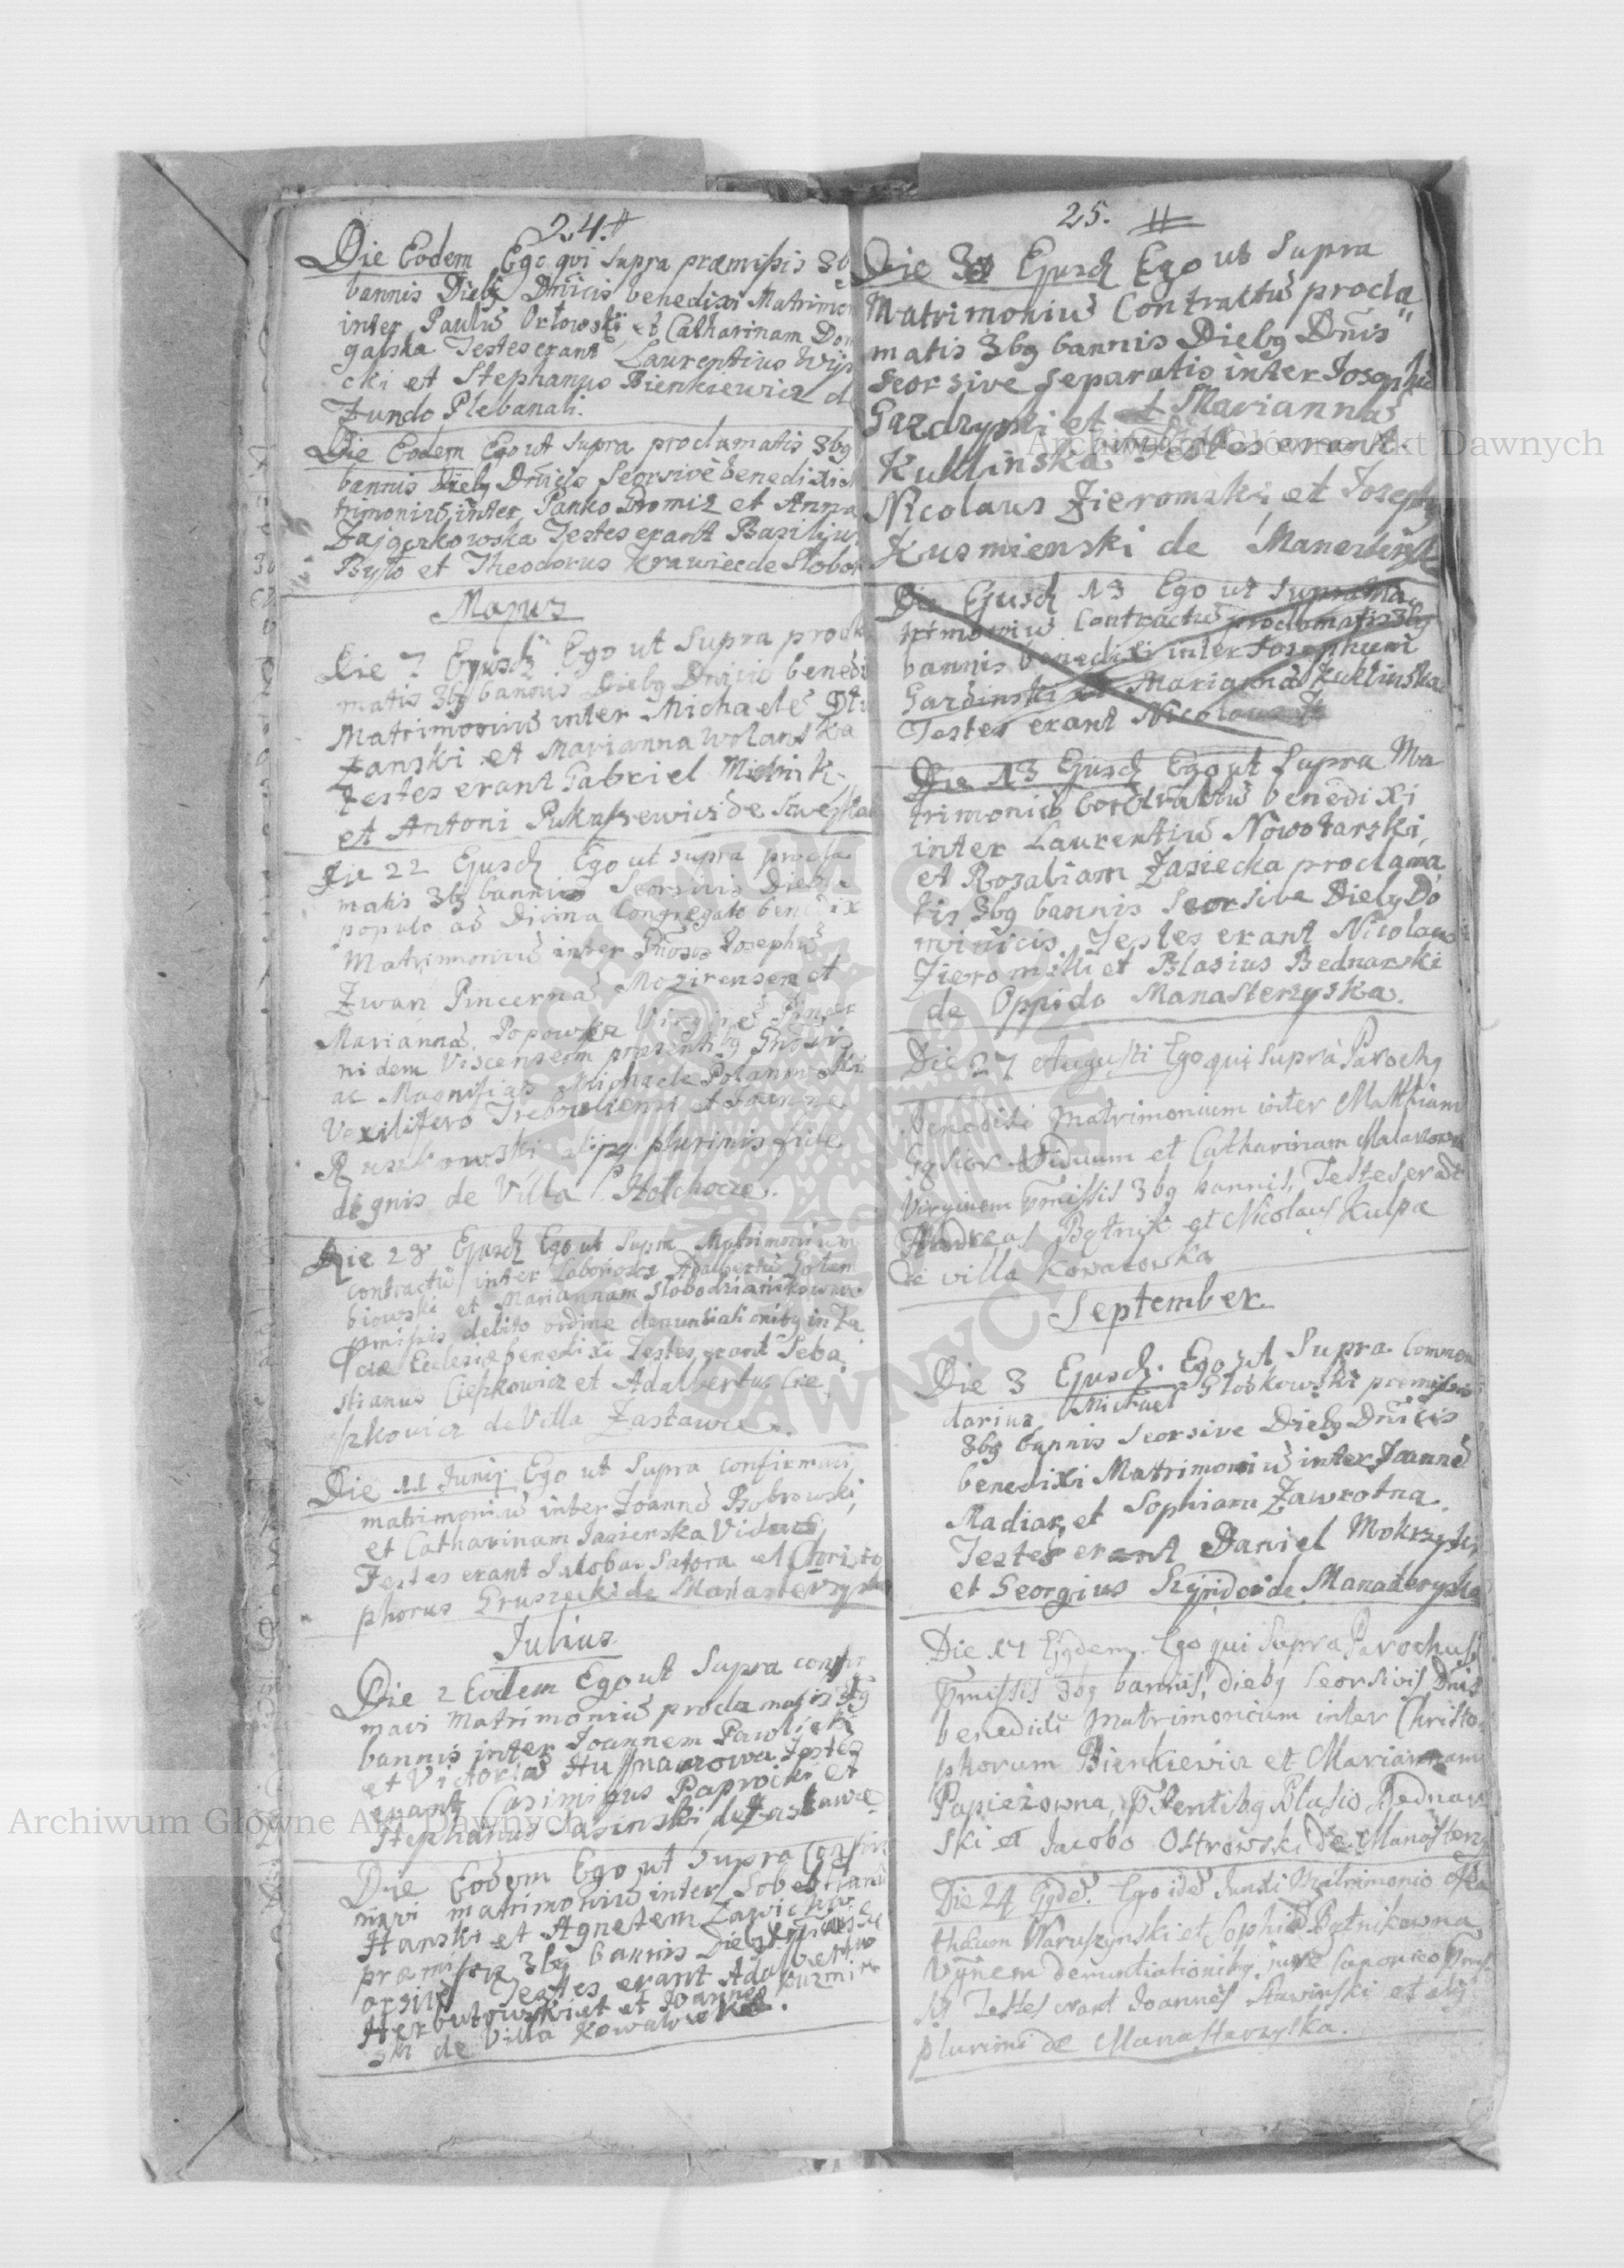 24.
Die Eodem Ego qui Supra præmissis 3b
bannis Diebg Dnicis benedixi Matrimon
inter Paulū Orłowski et Catharinam Dom
galska Testes erant Laurentius Wys
cki et Stephanus Bienkiewicz d
Fundo Plebanali.
Die Eodem Ego ut Supra proclamatis 3bg
bannis Diebg Dnicis Seorsive benedixi
trimoniū inter Panko Dromiz et Anna
Testes erant Basilius
Byto et Theodorus Krawiec de Słobo
Majus
Die 7 Ejusd Ego ut Supra procla
matis 3bg bannis Diebg Dnicis benedi
Matrimoniū inter Michaelē
et Marianna Wolanska
Testes erant Gabriel
et Antoni Łukaszewicz de
Die 22 Ejusd Ego ut supra procla
matis 3bg bannis Seorsivis Diebg
populo ad Divina Congregato benedix
Matrimoniū inter Gnosos Josephū
Zwan Pincernā Mozirensem et
Mariannā Popowska Virginē
nidem præsentibg Gnosis
ac Magnificis Michaele Potanowski
Vexillifero Trebowliensi et Joanne
Ruszkowski aliisq plurimis fide
dignis de Villa Hołhocze.
Die 28 Ejusd Ego ut Supra Matrimonium
contractū inter Laboriosos Adalbertū Gołem
biowski et Mariannam Słobodzianikowna
pmissis debito ordine denuntiationibg in fa
cie Ecclesiæ benedixi Testes erant Seba
stianus Cieszkowicz et Adalbertus Cie
szkowicz de Villa Zastawce.
Die 11 Junij Ego ut Supra confirmavi
matrimoniū inter Joannē Bobrowski
et Catharinam Jasienska Viduas
Testes erant Jakobus Satora et Christo
phorus Gruszecki de Manasterzyska
Julius
Die 2 Eodem Ego ut Supra confir
mavi Matrimoniū proclamatis 3bg
bannis inter Joannem Pawlicki
et Victoriā Testes
erant Casimirus Paprocki et
Stephanus Jasinski de Zastawce
Die Eodem Ego ut supra Confir
mavi matrimoniū inter Sebestianū
Hanski et Agnetem
præmissis 3bg bannis Diebg
Testes erant Adalbertus
Herbutowski et et Joannes Kuzmin
ski de Villa Kowalowka.
25.
Die 30 Ejusd Ego ut Supra
Matrimoniū Contractū procla
matis 3bg bannis Diebg Dnis
Seorsive separatis inter Josephū
Gazdzynski et Mariannā
Kuklinska Testes erant
Nicolaus Zieromski et Josephg
Kusmienski de Manesterzy
Die Ejusd 13 Ego ut Supra Ma
trimoniū Contractū proclamatis 3bg
bannis benedixi inter Josephum
Gardinski et Mariannā Kuklinska
Testes erant Nicolaus Z
Die 13 Ejusd Ego ut Supra Ma
trimoniū Contractū benedixi
inter Laurentiū Nowotarski,
et Rosaliam Zasiecka proclama
tis 3bg bannis Seorsive Diebg Do
minicis Testes erant Nicolaus
Zieromski et Blasius Bednarski
de Oppido Manasterzyska.
Die 27 Augusti Ego qui supra Parochg
Benedixi Matrimonium inter Matthiam
Viduum et Catharinam
Virginem pmissis 3bg bannis, Testes erāt
Andreas Bytnik et Nicolaus Kulpa
de villa Kowalowka
September
Die 3 Ejusd. Ego ut Supra Commen
darius Michael Głoskowski premissis
3bg bannis Seorsive Diebg Dnicis
benedixi Matrimoniū inter Joannē
Madiar, et Sophiam Zawrotna.
Testes erant Daniel Mokrzycki
et Georgius de Manasterzyska
Die 17 Ejgdem. Ego qui Supra Parochus
Pmissis 3bg bannis, diebg Seorsivis Dnis
benedixi Matrimonium inter Christo
phorum Bienkiewicz et Mariannam
Papieżowna, Ptentibg Blasio Bednar
ski et Jacobo Ostrowski de Manasterzy
Die 24 Ejgdē. Ego idē Junxi Matrimonio Ma
thæum Waruszynski et Sophiā Bytnikowna
Vginem denuntiationibg jure Canonico Pmis
sis Testes erant Joannes Stawinski et alij
plurimi de Manasterzyska.
Archiwum Główne Akt Dawnych
Archiwum Główne Akt Dawnych
ARCHIWUM GŁÓWNE AKT DAWNYCH